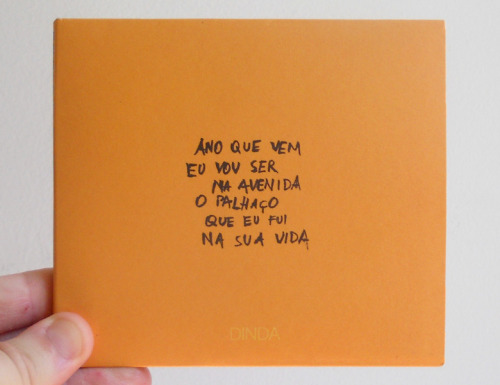 ANO QUE VEM
EU VOU SER
NA AVENIDA
O PALHAÇO
QUE EU FUI
NA SUA VIDA
DINDA